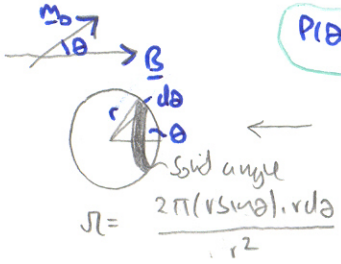 m₀
θ
B
P(θ
dθ
r
θ
Solid angle
Ω = 2π(r sinθ).rdθ
r²